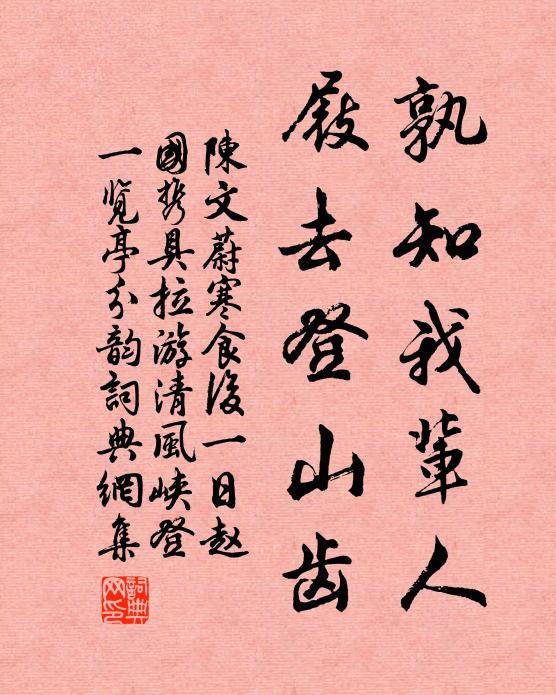 孰知我輩人
屐去登山齿
陳文蔚寒食後一日赵
國携具拉游清風峡登
一览亭分韵詞典網集
詞典網印